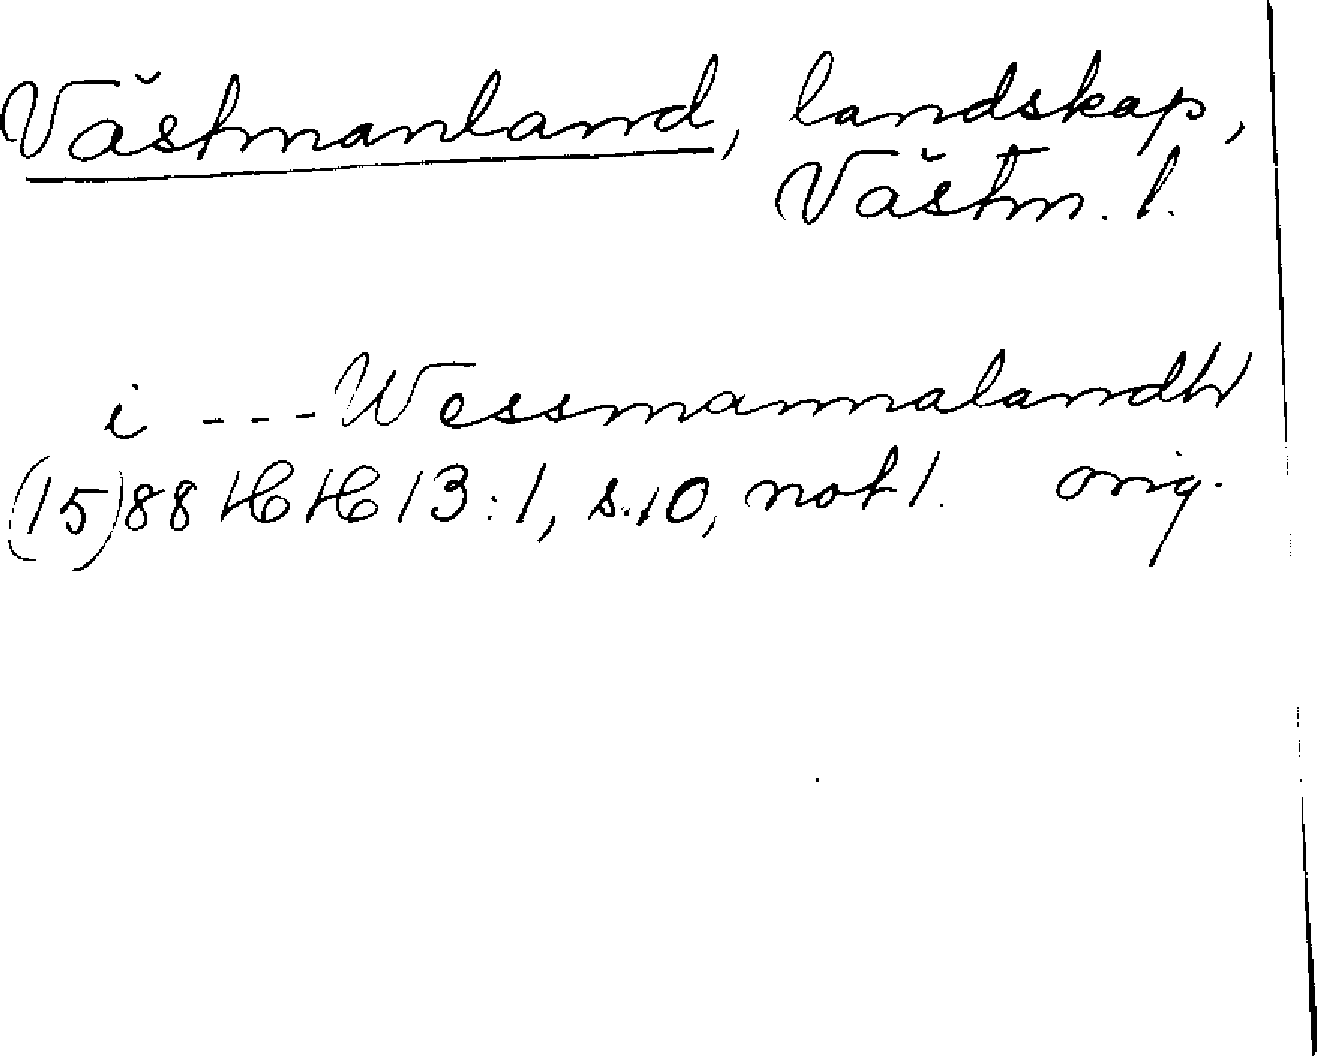 Västmanland, landskap,
Västm. l.
i --- Wessmannalandh
(15)88 HH 13:1, s. 10, not 1. orig.